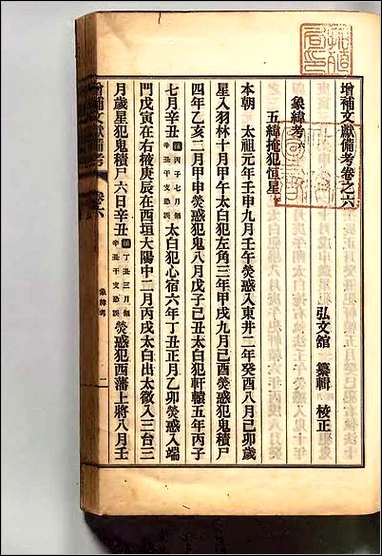 增補文獻備考卷之六
弘文館 纂輯 校正
象緯考六
五緯掩犯恒星
本朝 太祖元年壬申九月壬午熒惑入東井二年癸酉八月己卯歲
星入羽林十月甲午太白犯左角三年甲戌九月己酉熒惑犯鬼積尸
四年乙亥二月甲申熒惑犯鬼八月戊子己丑太白犯軒轅五年丙子
七月辛丑 丙子七月無辛丑干支恐誤 太白犯心宿六年丁丑正月乙卯熒惑入端
門戊寅在右掖庚辰在西垣大陽中二月丙戌太白出太微入三台三
月歲星犯鬼積尸六日辛丑 丁丑三月無辛丑干支恐誤 熒惑犯西藩上將八月壬
增補文獻備考 卷六 象緯考 二